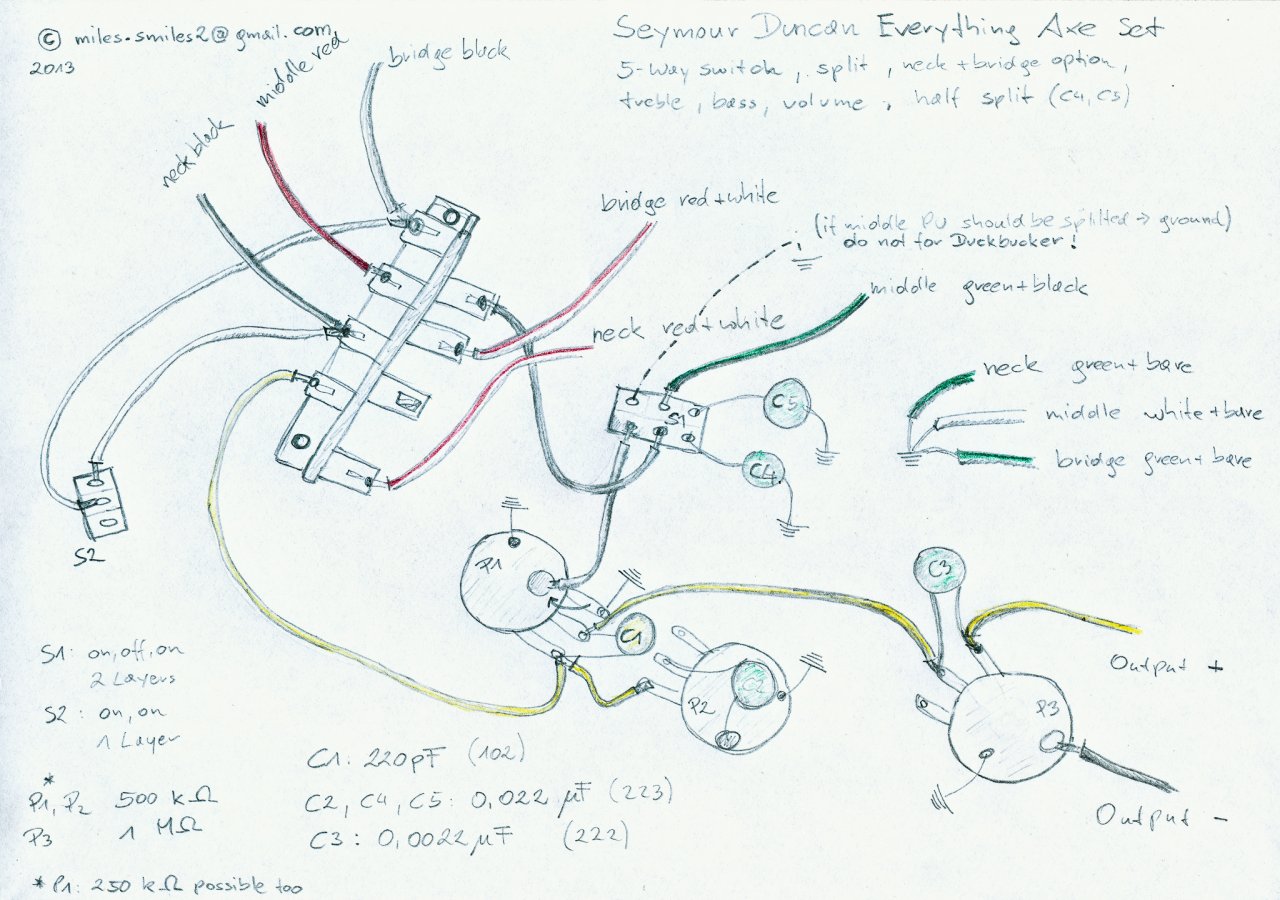 © miles.smiles2@gmail.com
2013
Seymour Duncan Everything Axe Set
5-way switch, split, neck+bridge option,
treble, bass, volume, half split (C4, C5)
middle red
bridge black
neck black
bridge red+white
(if middle PU should be splitted → ground)
do not for Duckbucker!
middle green+black
neck red+white
neck green+bare
middle white+bare
bridge green+bare
S1
C5
C4
S2
P1
C1
C2
P2
C3
P3
Output +
Output -
S1: on, off, on
2 Layers
S2: on, on
1 Layer
*
P1, P2 500 kΩ
P3 1 MΩ
* P1: 250 kΩ possible too
C1: 220pF (102)
C2, C4, C5: 0,022 µF (223)
C3: 0,0022 µF (222)